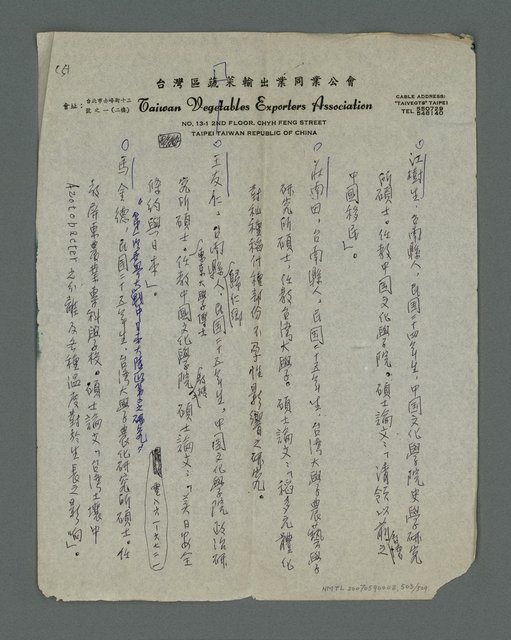 (5)
台灣區蔬菜輸出業同業公會
會址：台北市赤峰街十三號之一(二樓)
Taiwan Vegetables Exporters Association
NO. 13-1 2ND FLOOR. CHYH FENG STREET
TAIPEI TAIWAN REPUBLIC OF CHINA
CABLE ADDRESS:
"TAIVEGTS" TAIPEI
TEL
○江樹生，台南縣人，民国二十四年生，中国文化學院史學研究
所碩士。任教中國文化學院。碩士論文：「清領以前之台灣
中國移民」。
○莊南田，台南縣人，民国二十五年生，台湾大學農藝學
研究所碩士，任教台湾大學。碩士論文：「稻多元體化
對秈稉稻什種部份不孕性影響之研究。
○王友仁，台南縣歸仁鄉人，民国二十五年生，中国文化學院政治研
究所碩士。東京大學博士。任教中國文化學院。碩士論文：「美日安全
條約與日本」。
○馬全德，民國二十五年生，台湾大學農化研究所碩士。任
教屏東農業專科學校。碩士論文：「台湾土壤中
Azotobacter之分離及各種溫度對於生長之影响」。
NMTL20070590002,503/504